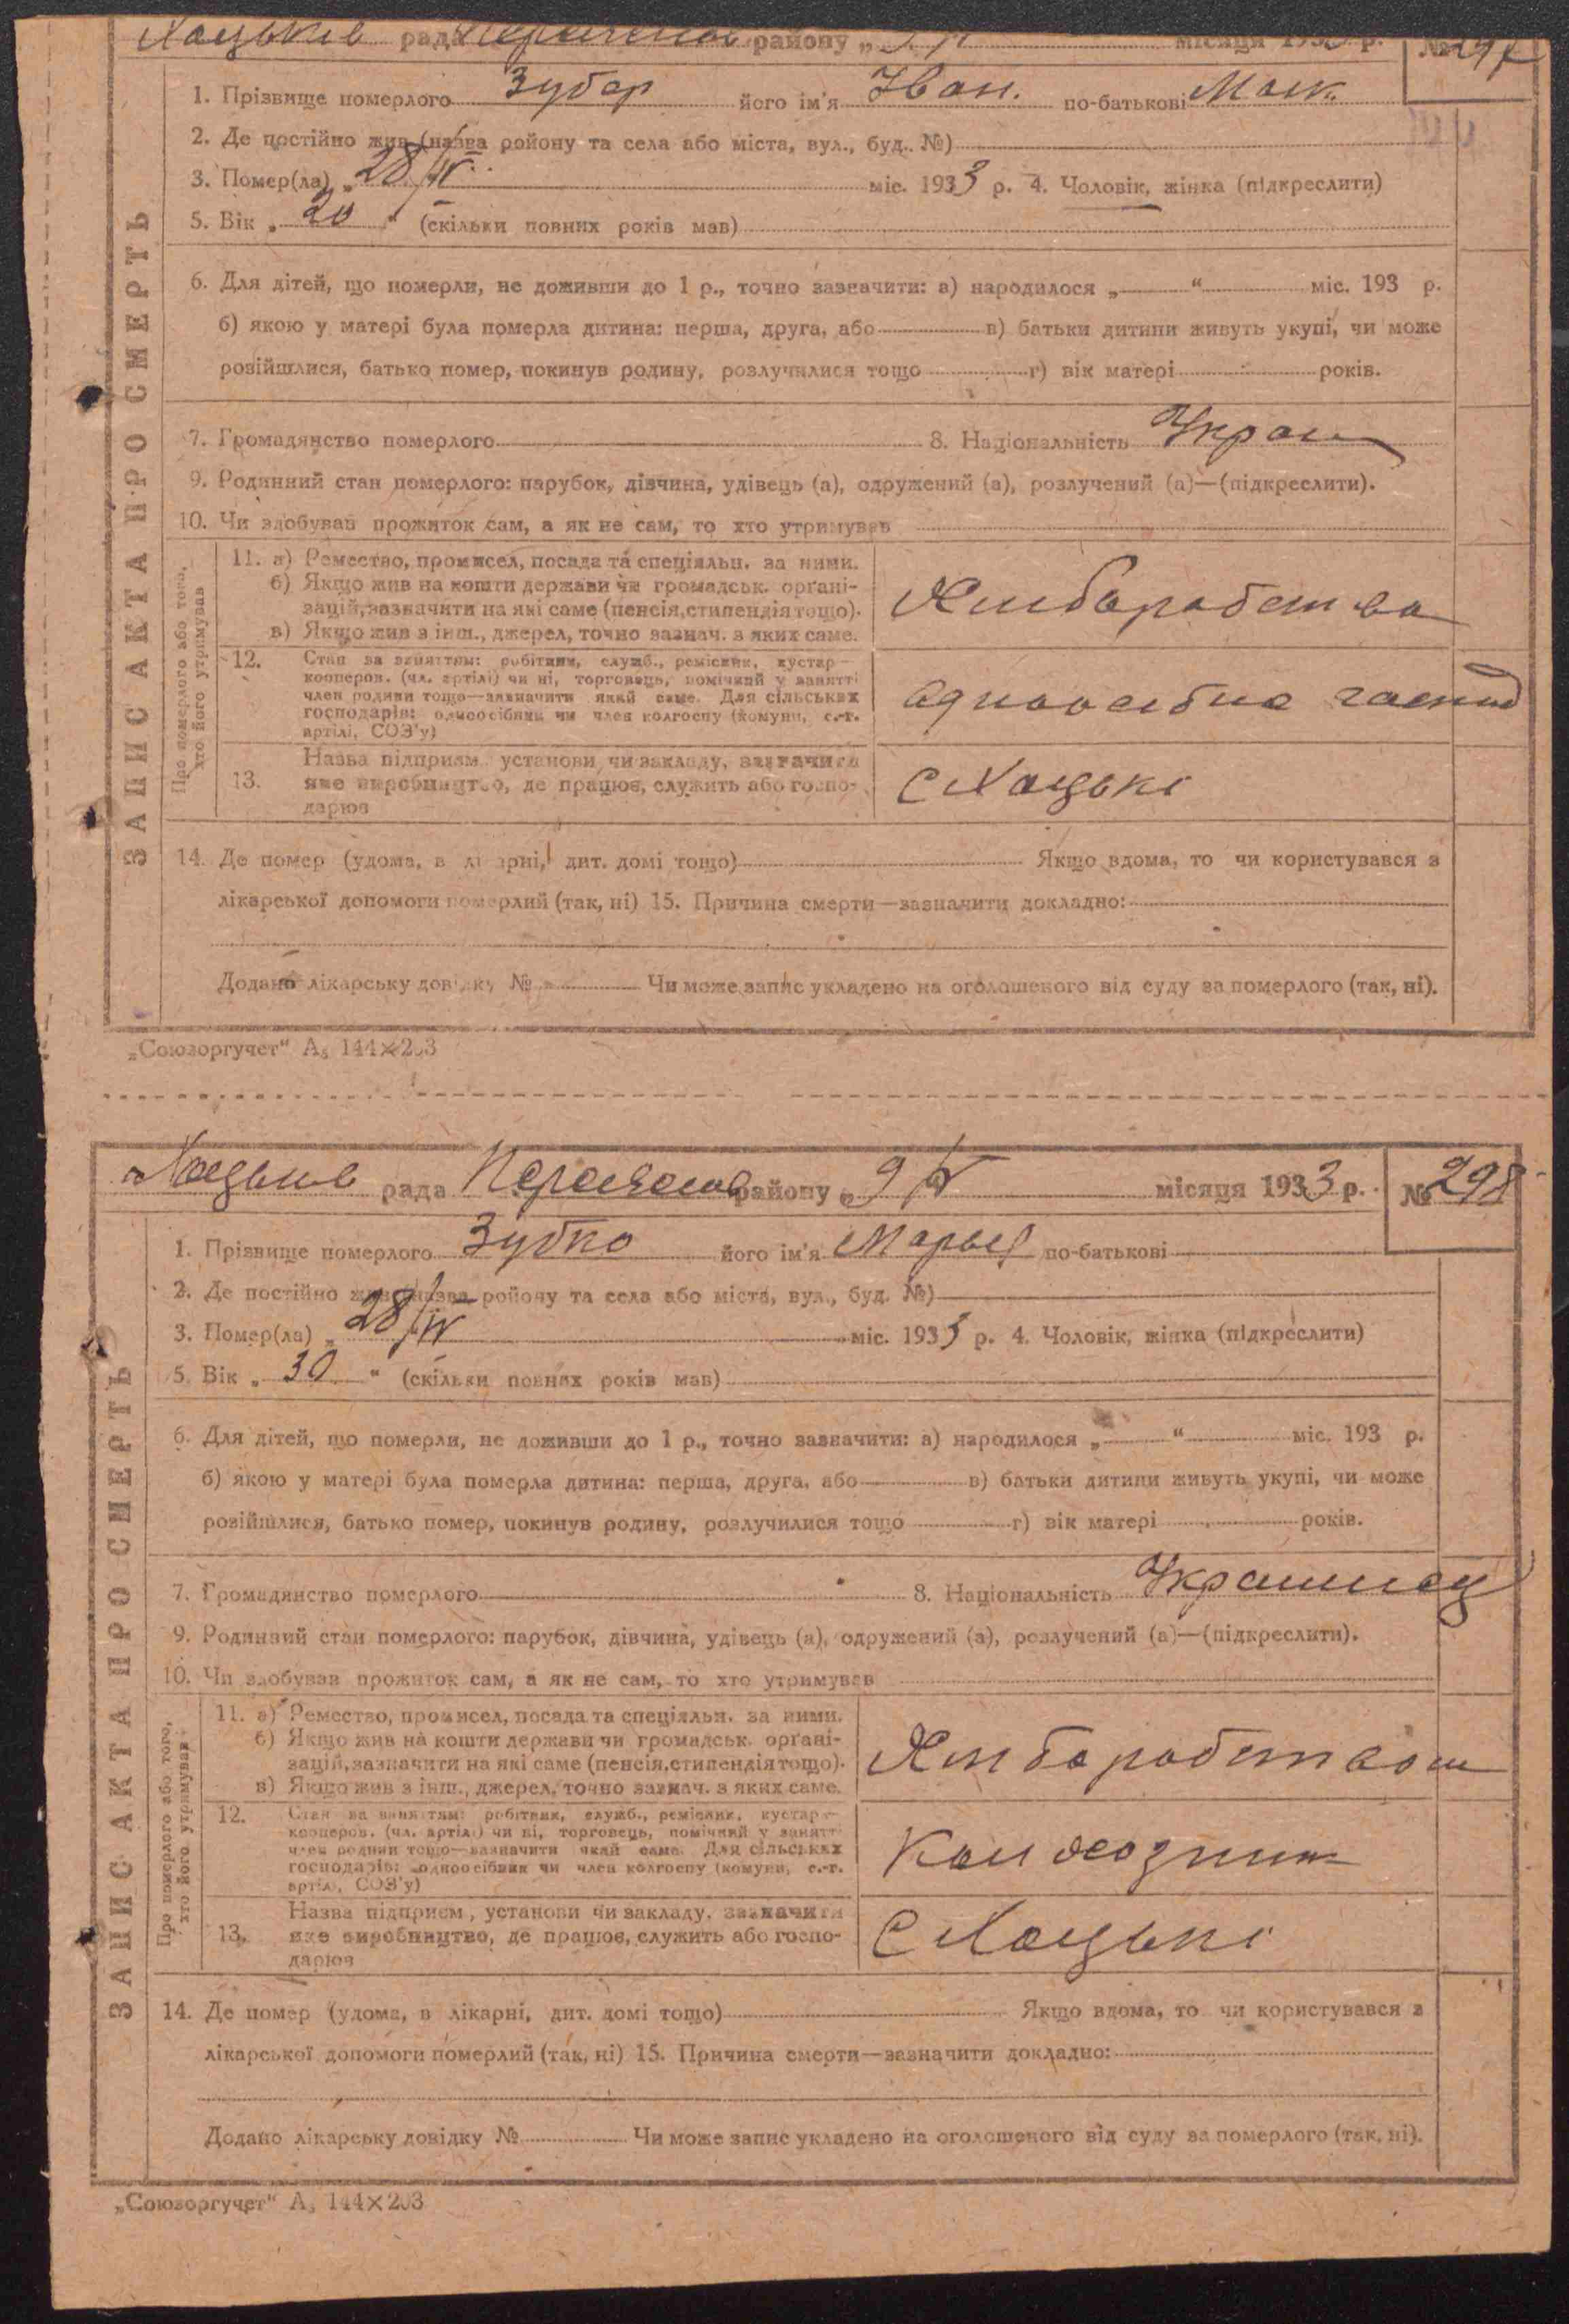 Хацьків рада Переясла району „ 9/V місяця 1933 р. № 297
1. Прізвище померлого Зубар його ім'я Іван. по-батькові Мак.
2. Де постійно жив (назва ройону та села або міста, вул., буд. №)
3. Помер(ла) „ 28/IV міс. 1933 р. 4. Чоловік, жінка (підкреслити)
5. Вік „ 20 “ (скільки повних років мав)
6. Для дітей, що померли, не доживши до 1 р., точно зазначити: а) народилося „ “ міс. 193 р.
б) якою у матері була померла дитина: перша, друга, або в) батьки дитини живуть укупі, чи може
розійшлися, батько помер, покинув родину, розлучилися тощо г) вік матері років.
7. Громадянство померлого 8. Національність Украї
9. Родинний стан померлого: парубок, дівчина, удівець (а), одружений (а), розлучений (а)—(підкреслити).
10. Чи здобував прожиток сам, а як не сам, то хто утримував
ЗАПИС АКТА ПРО СМЕРТЬ
Про померлого або того, хто його утримував
11. а) Ремество, промисел, посада та спеціяльн. за ними.
б) Якщо жив на кошти держави чи громадськ. органі-
зацій, зазначити на які саме (пенсія, стипендія тощо).
в) Якщо жив з інш., джерел, точно зазнач. з яких саме.
Хліборобство
12. Стан за заняттям: робітник, служб., ремісник, кустар—
кооперов. (чл. артілі) чи ні, торговець, помічний у занятті
член родини тощо—зазначити який саме. Для сільських
господарів: одноосібник чи член колгоспу (комуни, с.-г.
артілі, СОЗ'у)
одноосібне господ
13. Назва підприєм. установи чи закладу, зазначити
яке виробництво, де працює, служить або госпо-
дарює
С Хацьки
14. Де помер (удома, в лікарні, дит. домі тощо) Якщо вдома, то чи користувався з
лікарської допомоги померлий (так, ні) 15. Причина смерти—зазначити докладно:
Додано лікарську довідку № Чи може запис укладено на оголошеного від суду за померлого (так, ні).
„Союзоргучет“ А₅ 144×203
Хацьків рада Переяслав району „ 9/V місяця 1933 р. № 298
1. Прізвище померлого Зубко його ім'я Марья по-батькові
2. Де постійно жив (назва ройону та села або міста, вул., буд. №)
3. Помер(ла) „ 28/IV міс. 1933 р. 4. Чоловік, жінка (підкреслити)
5. Вік „ 30 “ (скільки повних років мав)
6. Для дітей, що померли, не доживши до 1 р., точно зазначити: а) народилося „ “ міс. 193 р.
б) якою у матері була померла дитина: перша, друга, або в) батьки дитини живуть укупі, чи може
розійшлися, батько помер, покинув родину, розлучилися тощо г) вік матері років.
7. Громадянство померлого 8. Національність Украинец
9. Родинний стан померлого: парубок, дівчина, удівець (а), одружений (а), розлучений (а)—(підкреслити).
10. Чи здобував прожиток сам, а як не сам, то хто утримував
ЗАПИС АКТА ПРО СМЕРТЬ
Про померлого або того, хто його утримував
11. а) Ремество, промисел, посада та спеціяльн. за ними.
б) Якщо жив на кошти держави чи громадськ. органі-
зацій, зазначити на які саме (пенсія, стипендія тощо).
в) Якщо жив з інш., джерел, точно зазнач. з яких саме.
Хліборобством
12. Стан за заняттям: робітник, служб., ремісник, кустар—
кооперов. (чл. артілі) чи ні, торговець, помічний у занятті
член родини тощо—зазначити який саме. Для сільських
господарів: одноосібник чи член колгоспу (комуни, с.-г.
артілі, СОЗ'у)
Колхозник
13. Назва підприєм, установи чи закладу, зазначити
яке виробництво, де працює, служить або госпо-
дарює
С Хацьки
14. Де помер (удома, в лікарні, дит. домі тощо) Якщо вдома, то чи користувався з
лікарської допомоги померлий (так, ні) 15. Причина смерти—зазначити докладно:
Додано лікарську довідку № Чи може запис укладено на оголошеного від суду за померлого (так, ні).
„Союзоргучет“ А₅ 144×203